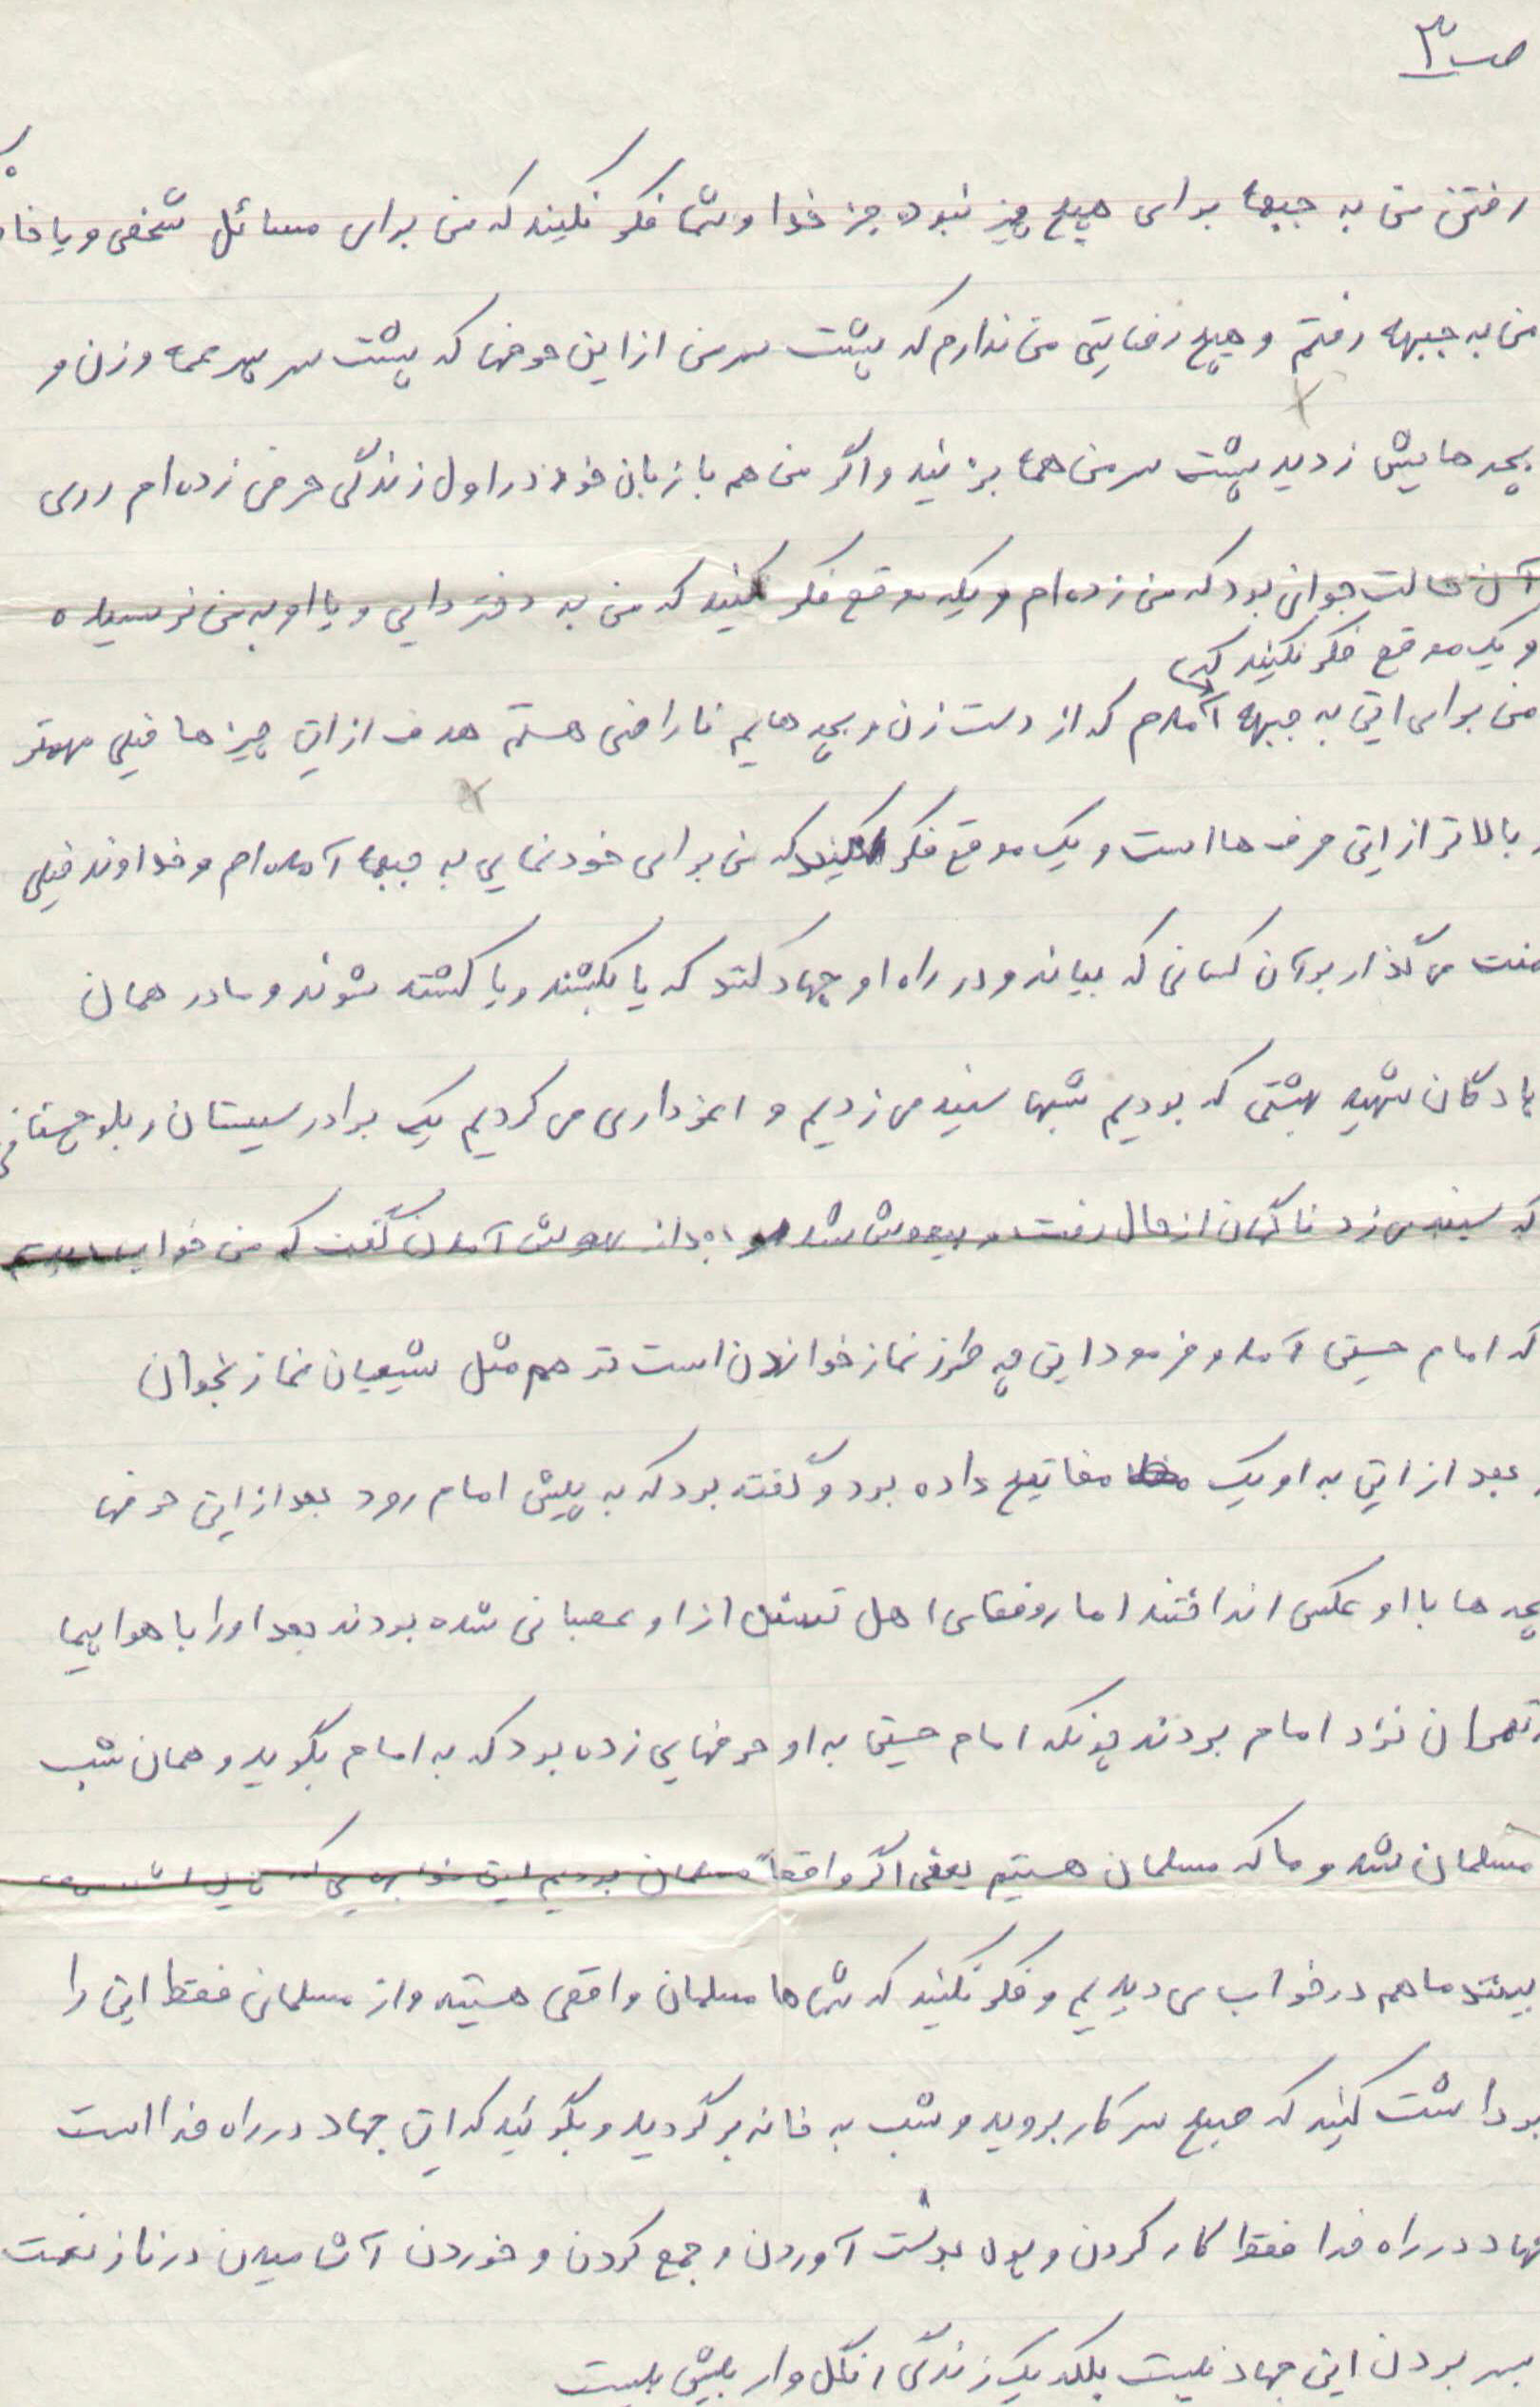 ص ۳
رفتن من به جبهه برای هیچ چیز نبوده جز خدا و شما فکر نکیند که من برای مسائل شخصی و یا
من به جبهه رفتم و هیچ رضایتی من ندارم که پشت سر من از این حرفها که پشت سر پسر عمه و زن و
بچه هایش زدید پشت سر من هم بزنید و اگر من هم با زبان خود در اول زندگی حرفی زده ام روی
آن حالت جوانی بود که من زده ام و یک موقع فکر نکنید که من به دختر دایی و یا او به من نرسیده
و یک موقع فکر نکیند که
من برای این به جبهه آمدم که از دست زن و بچه هایم ناراضی هستم هدف از این چیزها خیلی مهمتر
و بالاتر از این حرف ها است و یک موقع فکر نکیند که من برای خودنمایی به جبهه آمده ام و خداوند خیلی
منت می گذار بر آن کسانی که بیاند و در راه او جهاد کنند که یا بکشند و یا کشته شوند و ما در همان
پادگان شهید بهشتی که بودیم شبها سینه می زدیم و اعزداری می کردیم یک برادر سیستان و بلوچستانی
که سینه می زد ناگهان از حال رفت و بیهوش شد بعد از هوش آمدن گفت که من خواب دیدم
که امام حسین آمد و فرمود این چه طرز نماز خواندن است تو هم مثل شیعیان نماز بخوان
و بعد از این به او یک مفاتیح داده بود و گفته بود که به پیش امام رود بعد از این حرفها
بچه ها با او عکس انداختند اما رفقای اهل تسنن از او عصبانی شده بودند بعد او را با هواپیما
تهران نزد امام بردند چونکه امام حسین به او حرفهایی زده بود که به امام بگوید و همان شب
مسلمان شد و ما که مسلمان هستیم یعنی اگر واقعاً مسلمان بودیم این
بینند ما هم در خواب می دیدیم و فکر نکنید که شما ها مسلمان واقعی هستید و از مسلمانی فقط این را
برداشت کنید که صبح سر کار بروید و شب به خانه برگردید و بگوئید که این جهاد در راه خدا است
جهاد در راه خدا فقط کار کردن و پول بدست آوردن و جمع کردن و خوردن آشامیدن در ناز نعمت
بسر بردن این جهاد نیست بلکه یک زندگی انگل وار بیش نیست